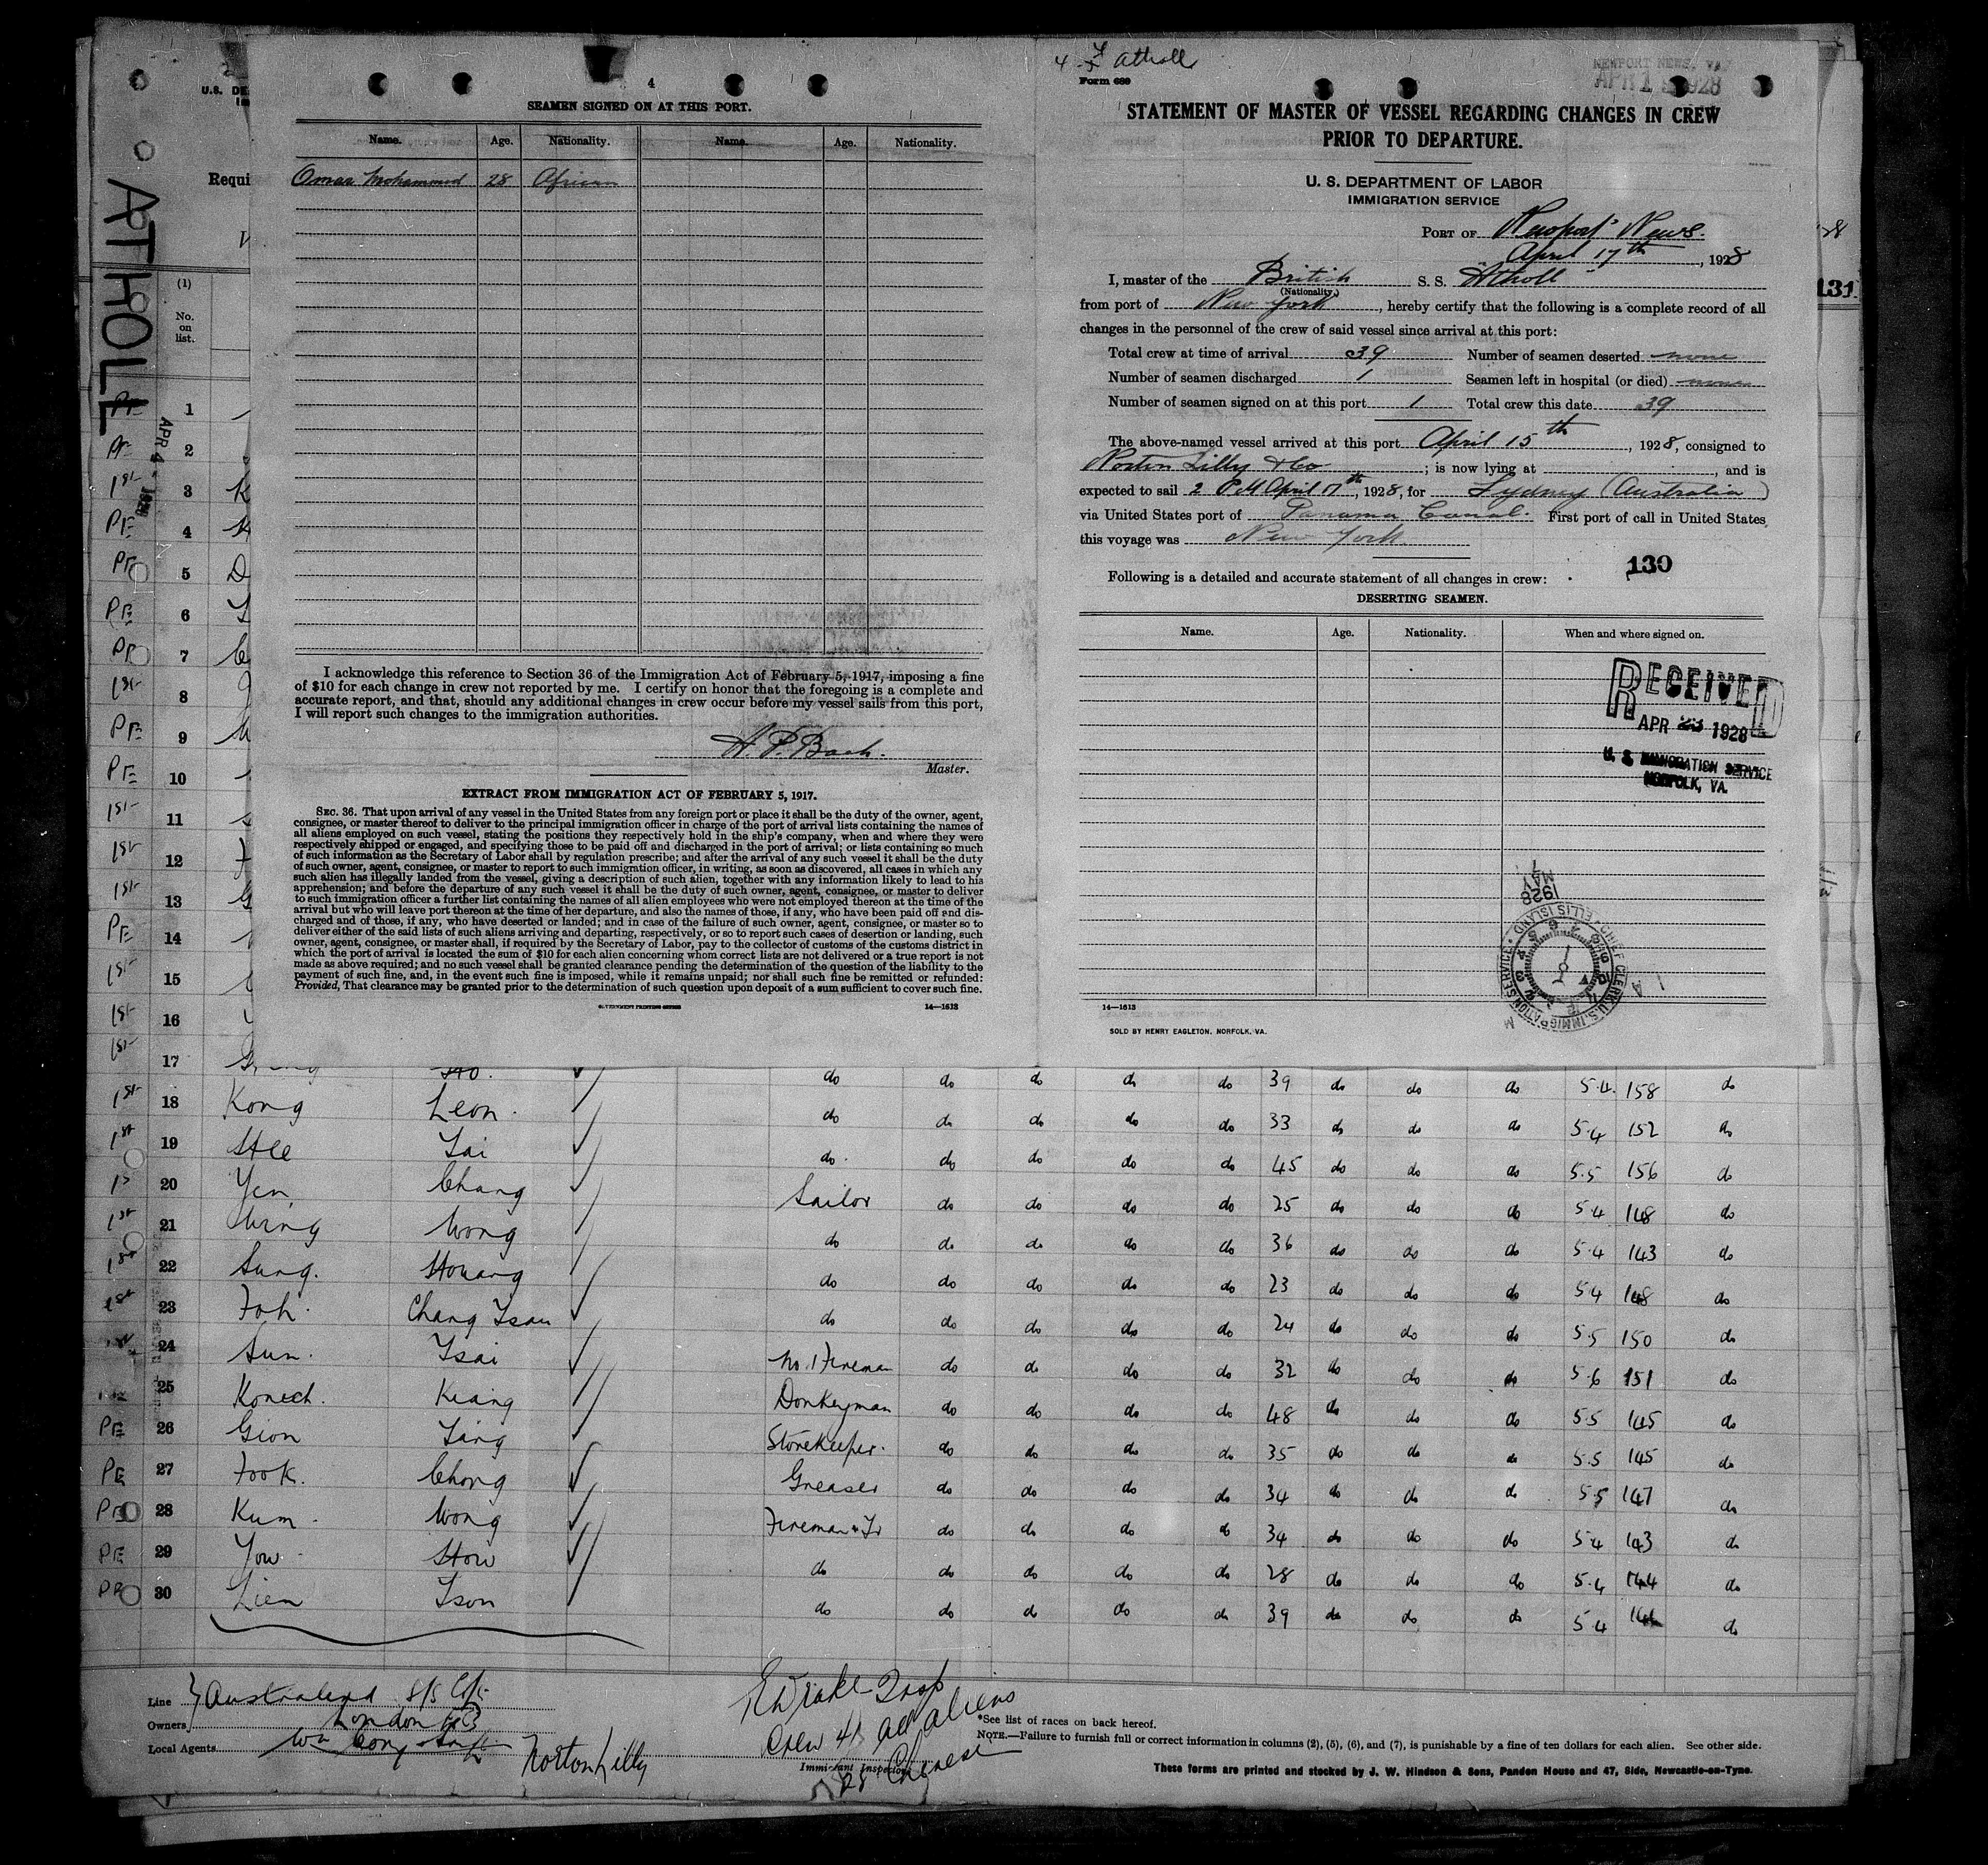 ATHOLL
U.S. DE
Requi
(1)
No.
on
list.
APR 4 - 1928
4
SEAMEN SIGNED ON AT THIS PORT.
Name. Age. Nationality. Name. Age. Nationality.
Omar Mohammed 28 African
I acknowledge this reference to Section 36 of the Immigration Act of February 5, 1917, imposing a fine
of $10 for each change in crew not reported by me. I certify on honor that the foregoing is a complete and
accurate report, and that, should any additional changes in crew occur before my vessel sails from this port,
I will report such changes to the immigration authorities.
Master.
EXTRACT FROM IMMIGRATION ACT OF FEBRUARY 5, 1917.
SEC. 36. That upon arrival of any vessel in the United States from any foreign port or place it shall be the duty of the owner, agent,
consignee, or master thereof to deliver to the principal immigration officer in charge of the port of arrival lists containing the names of
all aliens employed on such vessel, stating the positions they respectively hold in the ship's company, when and where they were
respectively shipped or engaged, and specifying those to be paid off and discharged in the port of arrival; or lists containing so much
of such information as the Secretary of Labor shall by regulation prescribe; and after the arrival of any such vessel it shall be the duty
of such owner, agent, consignee, or master to report to such immigration officer, in writing, as soon as discovered, all cases in which any
such alien has illegally landed from the vessel, giving a description of such alien, together with any information likely to lead to his
apprehension; and before the departure of any such vessel it shall be the duty of such owner, agent, consignee, or master to deliver
to such immigration officer a further list containing the names of all alien employees who were not employed thereon at the time of the
arrival but who will leave port thereon at the time of her departure, and also the names of those, if any, who have been paid off and dis-
charged and of those, if any, who have deserted or landed; and in case of the failure of such owner, agent, consignee, or master so to
deliver either of the said lists of such aliens arriving and departing, respectively, or so to report such cases of desertion or landing, such
owner, agent, consignee, or master shall, if required by the Secretary of Labor, pay to the collector of customs of the customs district in
which the port of arrival is located the sum of $10 for each alien concerning whom correct lists are not delivered or a true report is not
made as above required; and no such vessel shall be granted clearance pending the determination of the question of the liability to the
payment of such fine, and, in the event such fine is imposed, while it remains unpaid; nor shall such fine be remitted or refunded:
Provided, That clearance may be granted prior to the determination of such question upon deposit of a sum sufficient to cover such fine.
GOVERNMENT PRINTING OFFICE 14—1613
Atholl
Form 689
NEWPORT NEWS, VA.
STATEMENT OF MASTER OF VESSEL REGARDING CHANGES IN CREW
PRIOR TO DEPARTURE.
U. S. DEPARTMENT OF LABOR
IMMIGRATION SERVICE
PORT OF Newport News.
April 17th, 1928
I, master of the British S. S. "Atholl"
(Nationality.)
from port of New York, hereby certify that the following is a complete record of all
changes in the personnel of the crew of said vessel since arrival at this port:
Total crew at time of arrival 39 Number of seamen deserted none
Number of seamen discharged 1 Seamen left in hospital (or died) none
Number of seamen signed on at this port 1 Total crew this date 39
The above-named vessel arrived at this port April 15th, 1928, consigned to
Norton Lilly & Co; is now lying at , and is
expected to sail 2 PM April 17th, 1928, for Sydney (Australia)
via United States port of Panama Canal. First port of call in United States
this voyage was New York.
130
131
Following is a detailed and accurate statement of all changes in crew:
DESERTING SEAMEN.
Name. Age. Nationality. When and where signed on.
RECEIVED
APR 23 1928
U. S. IMMIGRATION SERVICE
NORFOLK, VA.
1928
MAY
CHIEF CLERK U.S. IMMIGRATION SERVICE ELLIS ISLAND
14—1613
SOLD BY HENRY EAGLETON, NORFOLK, VA.
PE 1
PE 2
1st 3
PE 4
PE 5
PE 6
PE 7
1st 8
PE 9
PE 10
1st 11
1st 12
1st 13
PE 14
1st 15
1st 16
1st 17 Ho. do do do do do 39 do do do 5.4. 158 do
1st 18 Kong Leon. do do do do do 33 do do do 5.4 152 do
1st 19 Hee Tai do. do do do do 45 do do do 5.5 156 do
1s 20 Yen Chang Sailor do do do do 25 do do do 5.4 148 do
1st 21 Wong do do do do do 36 do do do 5.4 143 do
1st 22 Sung. do do do do do 23 do do do 5.4 148 do
1st 23 Foh. Chang Tsan do do do do do 24 do do do 5.5 150 do
24 Sun. Tsai No. 1 Fireman do do do do 32 do do do 5.6 151 do
25 Kiang Donkeyman do do do do 48 do do do 5.5 145 do
PE 26 Gion Storekeeper. do do do do 35 do do do 5.5 145 do
PE 27 Fook. Chong Greaser do do do do 34 do do do 5.5 147 do
PE 28 Kum. Wong Fireman & Tr do do do do 34 do do do 5.4 143 do
PE 29 Yow. How do do do do do 28 do do do 5.4 144 do
PE 30 Lien Tson do do do do do 39 do do do 5.4 do
Line Australend S/S
Owners London EC3
Local Agents Norton Lilly
Crew all aliens
28 Chinese
Immigrant Inspector
*See list of races on back hereof.
NOTE.—Failure to furnish full or correct information in columns (2), (5), (6), and (7), is punishable by a fine of ten dollars for each alien. See other side.
These forms are printed and stocked by J. W. Hindson & Sons, Pandon House and 47, Side, Newcastle-on-Tyne.